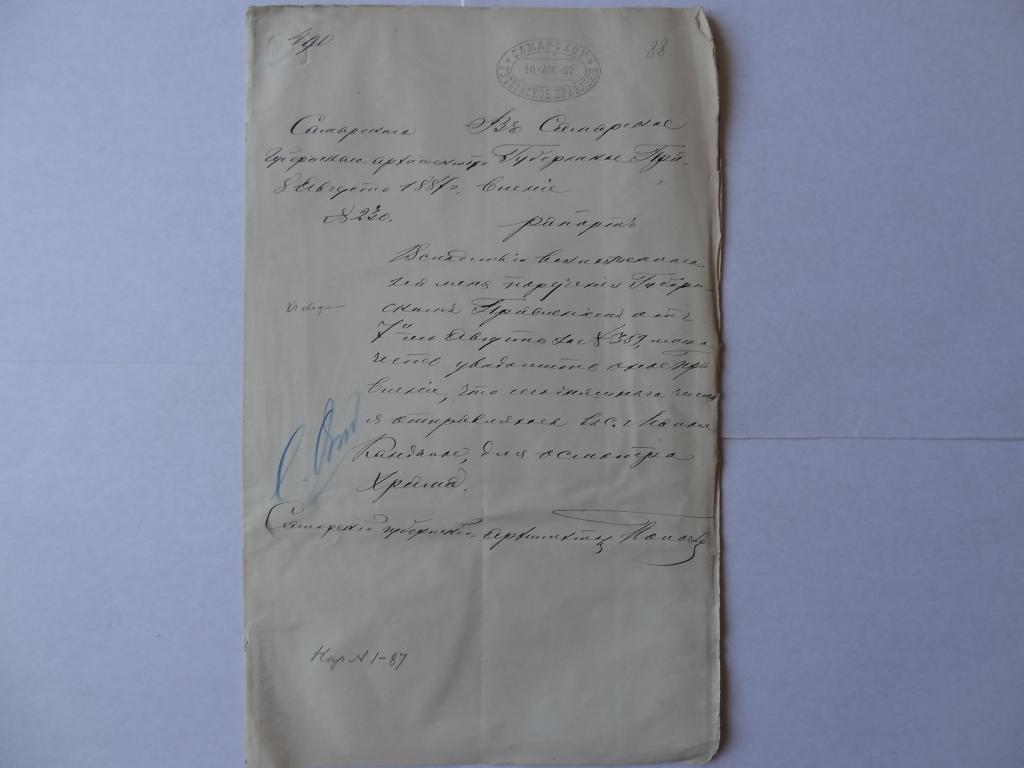 490
88
САМАРСКОЕ
10 АВГ 87
ГУБЕРНСКОЕ ПРАВЛЕНІЕ
Самарскаго
Губернскаго архитектора
8 Августа 1887 г.
№ 230.
Въ Самарское
Губернское Прав-
леніе
рапортъ
Вслѣдствіе возложеннаго
на меня порученія Губерн-
скимъ Правленіемъ отъ
7го Августа за № 359 имѣю
честь увѣдомить оное Пра
вленіе, что сегодняшняго числа
я отправляюсь въ с.
для осмотра
Храма.
Самарскій губернскій архитекторъ
№ 1-87